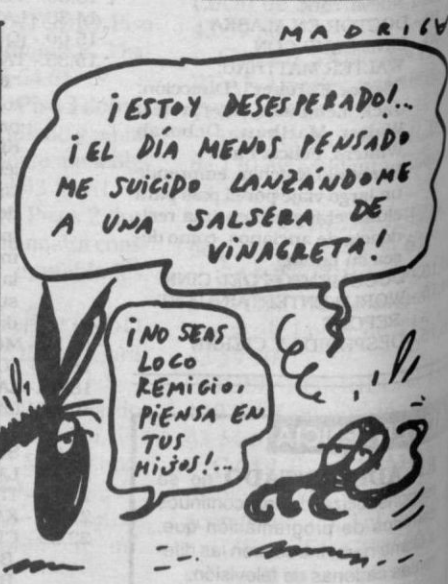 MADRIGA
¡ESTOY DESESPERADO!..
¡EL DÍA MENOS PENSADO
ME SUICIDO LANZÁNDOME
A UNA SALSERA DE
VINAGRETA!
¡NO SEAS
LOCO
REMIGIO,
PIENSA EN
TUS
HIJOS!...